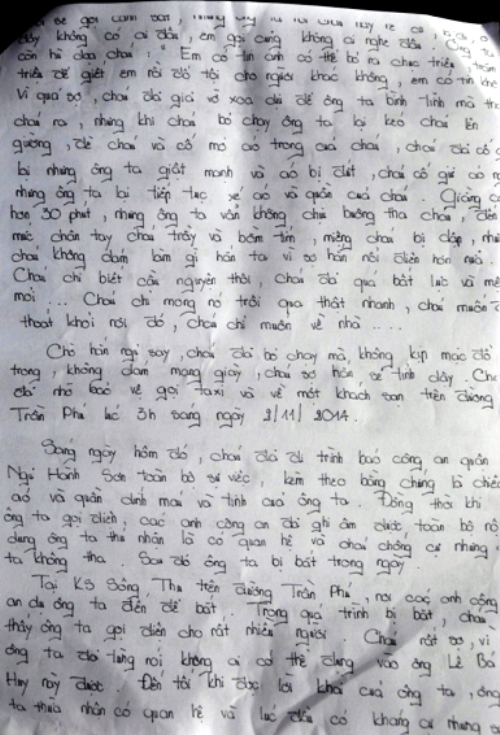 sẽ gọi cảnh sát,
đây không có ai đâu, em gọi cũng không ai nghe đâu. Ông ta
còn hù dọa cháu: " Em có tin anh có thể bỏ ra chục triệu, trăm
triệu để giết em rồi đổ tội cho người khác không, em có tin không
Vì quá sợ, cháu đã giả vờ xoa dịu để ông ta bình tĩnh mà thả
cháu ra, nhưng khi cháu bỏ chạy ông ta lại kéo cháu lên
giường, đè cháu và cố mở áo trong của cháu, cháu đã cố
lại nhưng ông ta giật mạnh và áo bị đứt, cháu cố giữ áo
nhưng ông ta lại tiếp tục xé áo và quần của cháu. Giằng co
hơn 30 phút, nhưng ông ta vẫn không chịu buông tha cháu, đến
mức chân tay cháu trầy và bầm tím, miệng cháu bị dập,
cháu không dám làm gì hắn ta vì sợ hắn nổi điên hơn nữa
Cháu chỉ biết cầu nguyện thôi, cháu đã quá bất lực và mệt
mỏi ... Cháu chỉ mong nó trôi qua thật nhanh, cháu muốn
thoát khỏi nơi đó, cháu chỉ muốn về nhà ....
Chờ hắn ngủ say, cháu đã bỏ chạy mà không kịp mặc đồ
trong, không dám mang giày, cháu sợ hắn sẽ tỉnh dậy. Cháu
đã nhờ bảo vệ gọi taxi và về một khách sạn trên đường
Trần Phú lúc 3h sáng ngày 2/11/2014.
Sáng ngày hôm đó, cháu đã đi trình báo công an quận
Ngũ Hành Sơn toàn bộ sự việc, kèm theo bằng chứng là chiếc
áo và quần dính máu và tinh của ông ta. Đồng thời khi
ông ta gọi điện, các anh công an đã ghi âm được toàn bộ nội
dung ông ta thú nhận là có quan hệ và cháu chống cự nhưng
ta không tha. Sau đó ông ta bị bắt trong ngày.
Tại KS Sông Thu trên đường Trần Phú, nơi các anh công
an dụ ông ta đến để bắt. Trong quá trình bị bắt, cháu
thấy ông ta gọi điện cho rất nhiều người. Cháu rất sợ, vì
ông ta đã từng nói không ai có thể đụng vào ông Lê Bá
Huy này được. Đến tối khi đọc lời khai của ông ta, ông
ta thừa nhận có quan hệ và lúc đầu có kháng cự nhưng